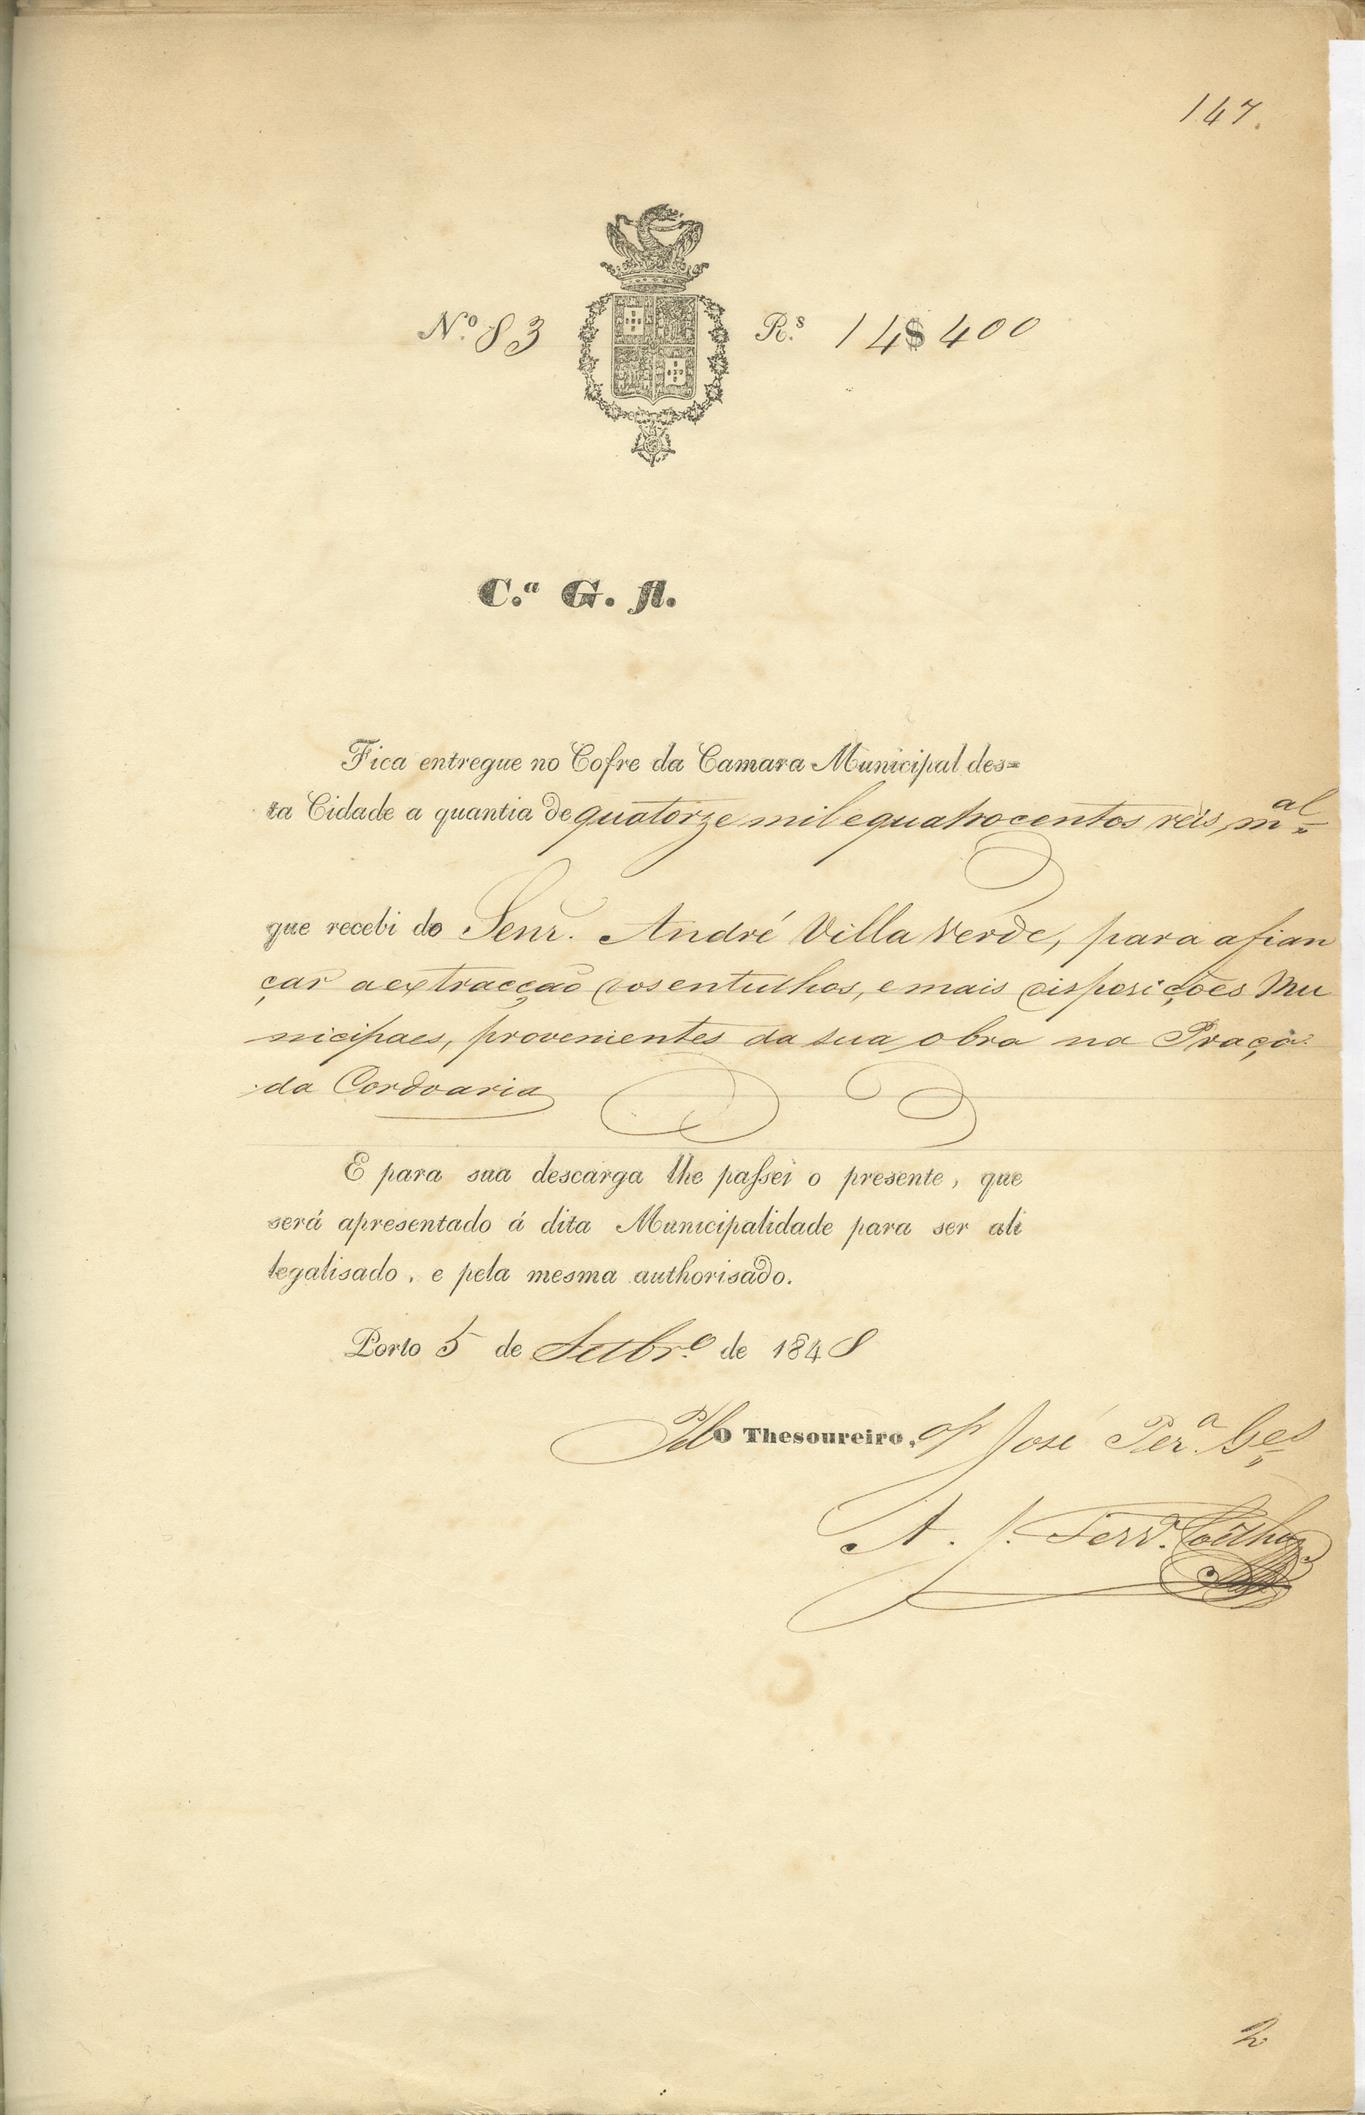 147.
N.º 83 R.s 14$400
C.ª G. fl.
Fica entregue no Cofre da Camara Municipal des=
ta Cidade a quantia de quatorze mil e quatrocentos reis, m.al
que recebi do Senr. André Villa Verde, para afian
çar a extracção dos entulhos, e mais disposições Mu
nicipaes, provenientes da sua obra na Praça
da Cordoaria
E para sua descarga lhe passei o presente, que
será apresentado á dita Municipalidade para ser ali
legalisado, e pela mesma authorisado.
Porto 5 de Setbr.o de 1848
Pelo O Thesoureiro, José Per.a Ges
A. J. Ferr.a Coelho